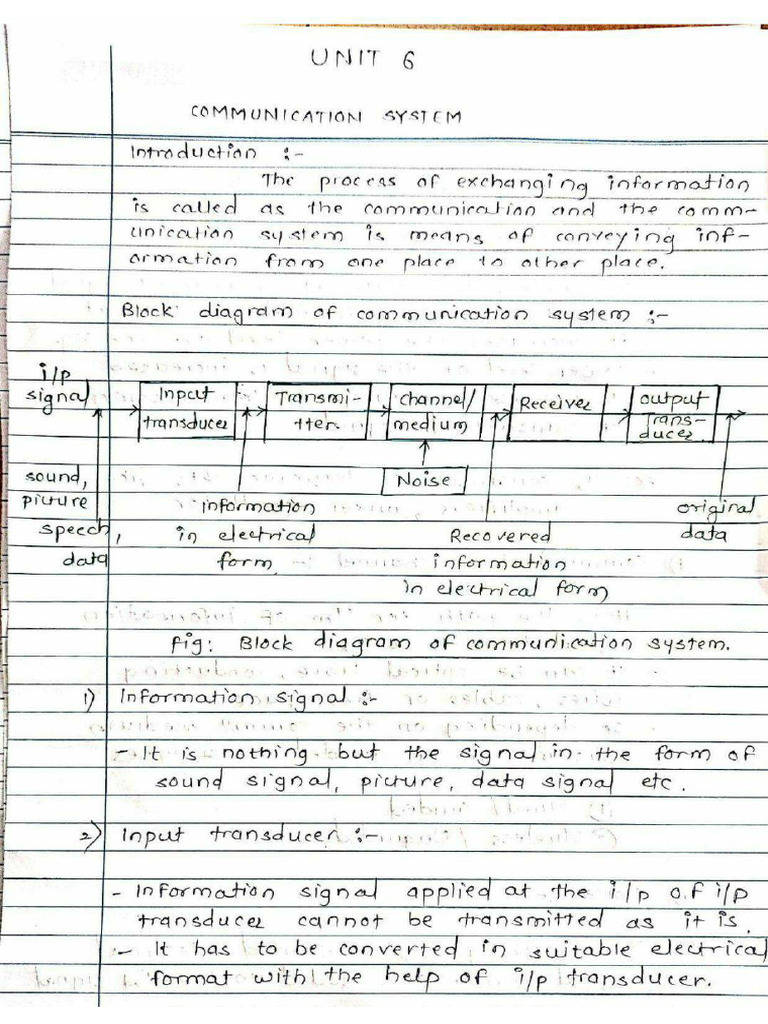 UNIT 6
COMMUNICATION SYSTEM
Introduction :-
The process of exchanging information
is called as the communication and the comm-
unication system is means of conveying inf-
ormation from one place to other place.
Block diagram of communication system :-
i/p
signal
Input
transducer
Transmi-
tter
channel/
medium
Receiver
output
Trans-
ducer
Noise
sound,
picture
speech,
data
information
in electrical
form
Recovered
information
in electrical form
original
data
fig: Block diagram of communication system.
1) Information signal :-
- It is nothing but the signal in the form of
sound signal, picture, data signal etc.
2) Input transducer :-
- Information signal applied at the i/p of i/p
transducer cannot be transmitted as it is.
- It has to be converted in suitable electrical
format with the help of i/p transducer.